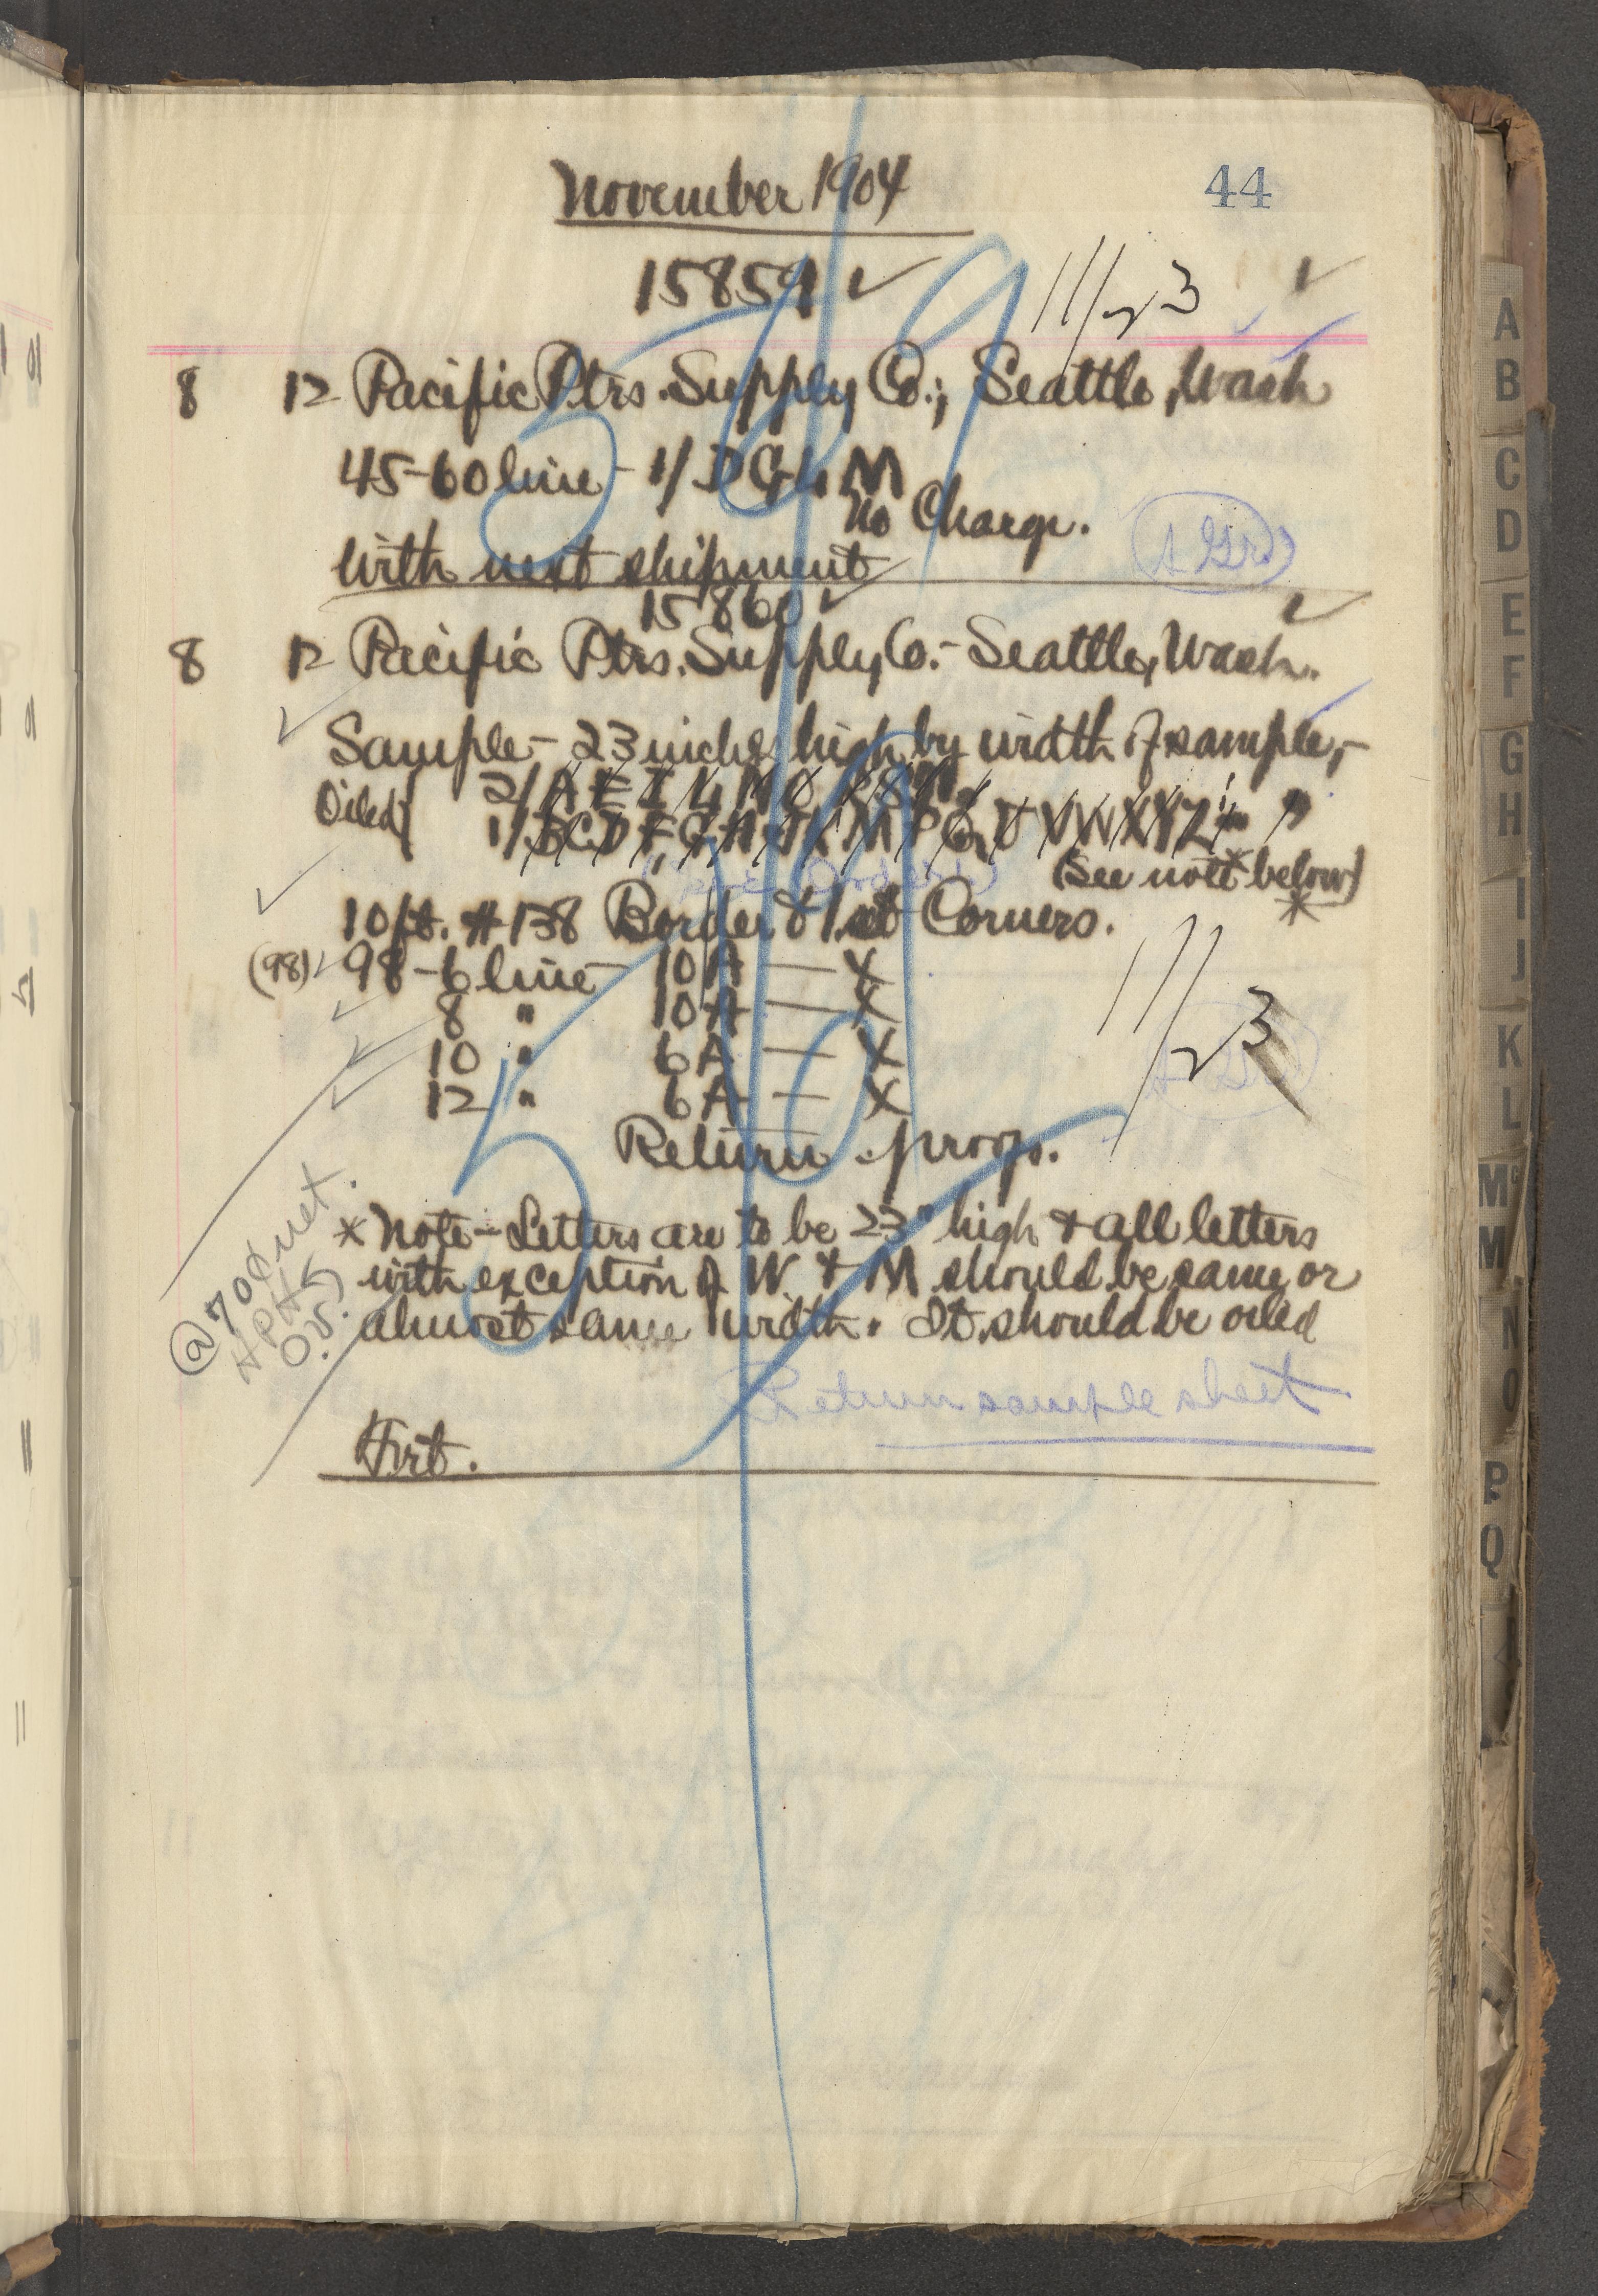 44
November 1904
15859 ✓
11/23
8 12 Pacific Ptrs. Supply Co.; Seattle, Wash
45-60 line - 1/ D G H M
No Charge.
with next shipment
15860 ✓
8 12 Pacific Ptrs. Supply Co. - Seattle, Wash.
Sample - 23 inches high by width of sample, -
Oiled 2/ A E I L N O R S
1/ B C D F G H J K M P Q U V W X Y Z
(See note below)
*
10 ft. #138 Border & 1 set Corners.
(98) 98 - 6 line - 10 A — X
8 " 10 A — X
10 " 6 A — X
12 " 6 A — X
11/23
Return proof.
* Note - Letters are to be 23" high & all letters
with exception of W. & M should be same or
almost same width. It should be oiled
@ 70¢ net.
Return sample sheet
Frt.
A
B
C
D
E
F
G
H
I
J
K
L
Mc
M
N
O
P
Q